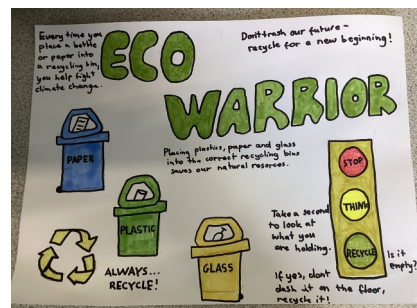 Every time you
place a bottle
or paper into
a recycling bin,
you help fight
climate change.
ECO
WARRIOR
Don't trash our future -
recycle for a new beginning!
Placing plastics, paper and glass
into the correct recycling bins
saves our natural resorces.
PAPER
PLASTIC
GLASS
ALWAYS...
RECYCLE!
STOP
THINK
RECYCLE
Take a second
to look at
what you
are holding.
Is it
empty?
If yes, dont
dash it on the floor,
recycle it!